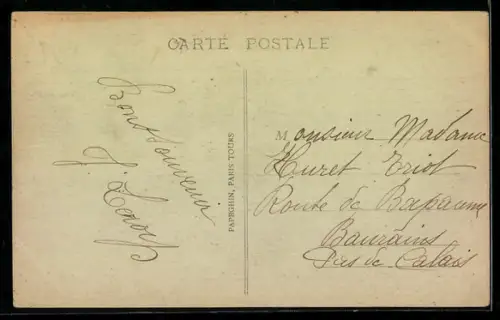 CARTE POSTALE
Bons Souvenir
J.
PAPEGHIN, PARIS TOURS
Monsieur Madame
Huret Triot
Route de Bapaume
Baurains
Pas de Calais